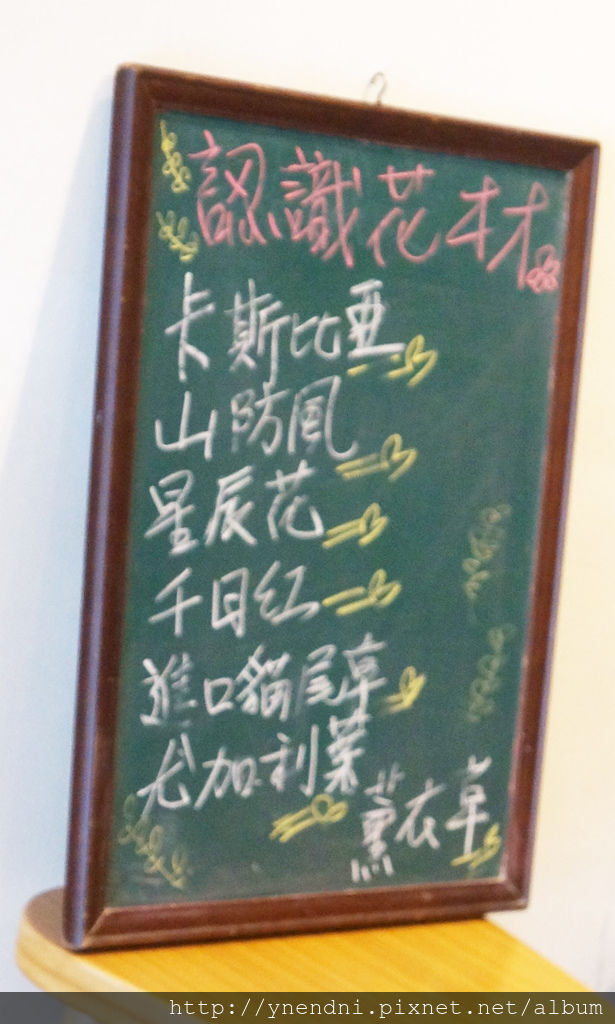 認識花材
卡斯比亞
山防風
星辰花
千日紅
進口貓尾草
尤加利葉
薰衣草
http://ynendni.pixnet.net/album